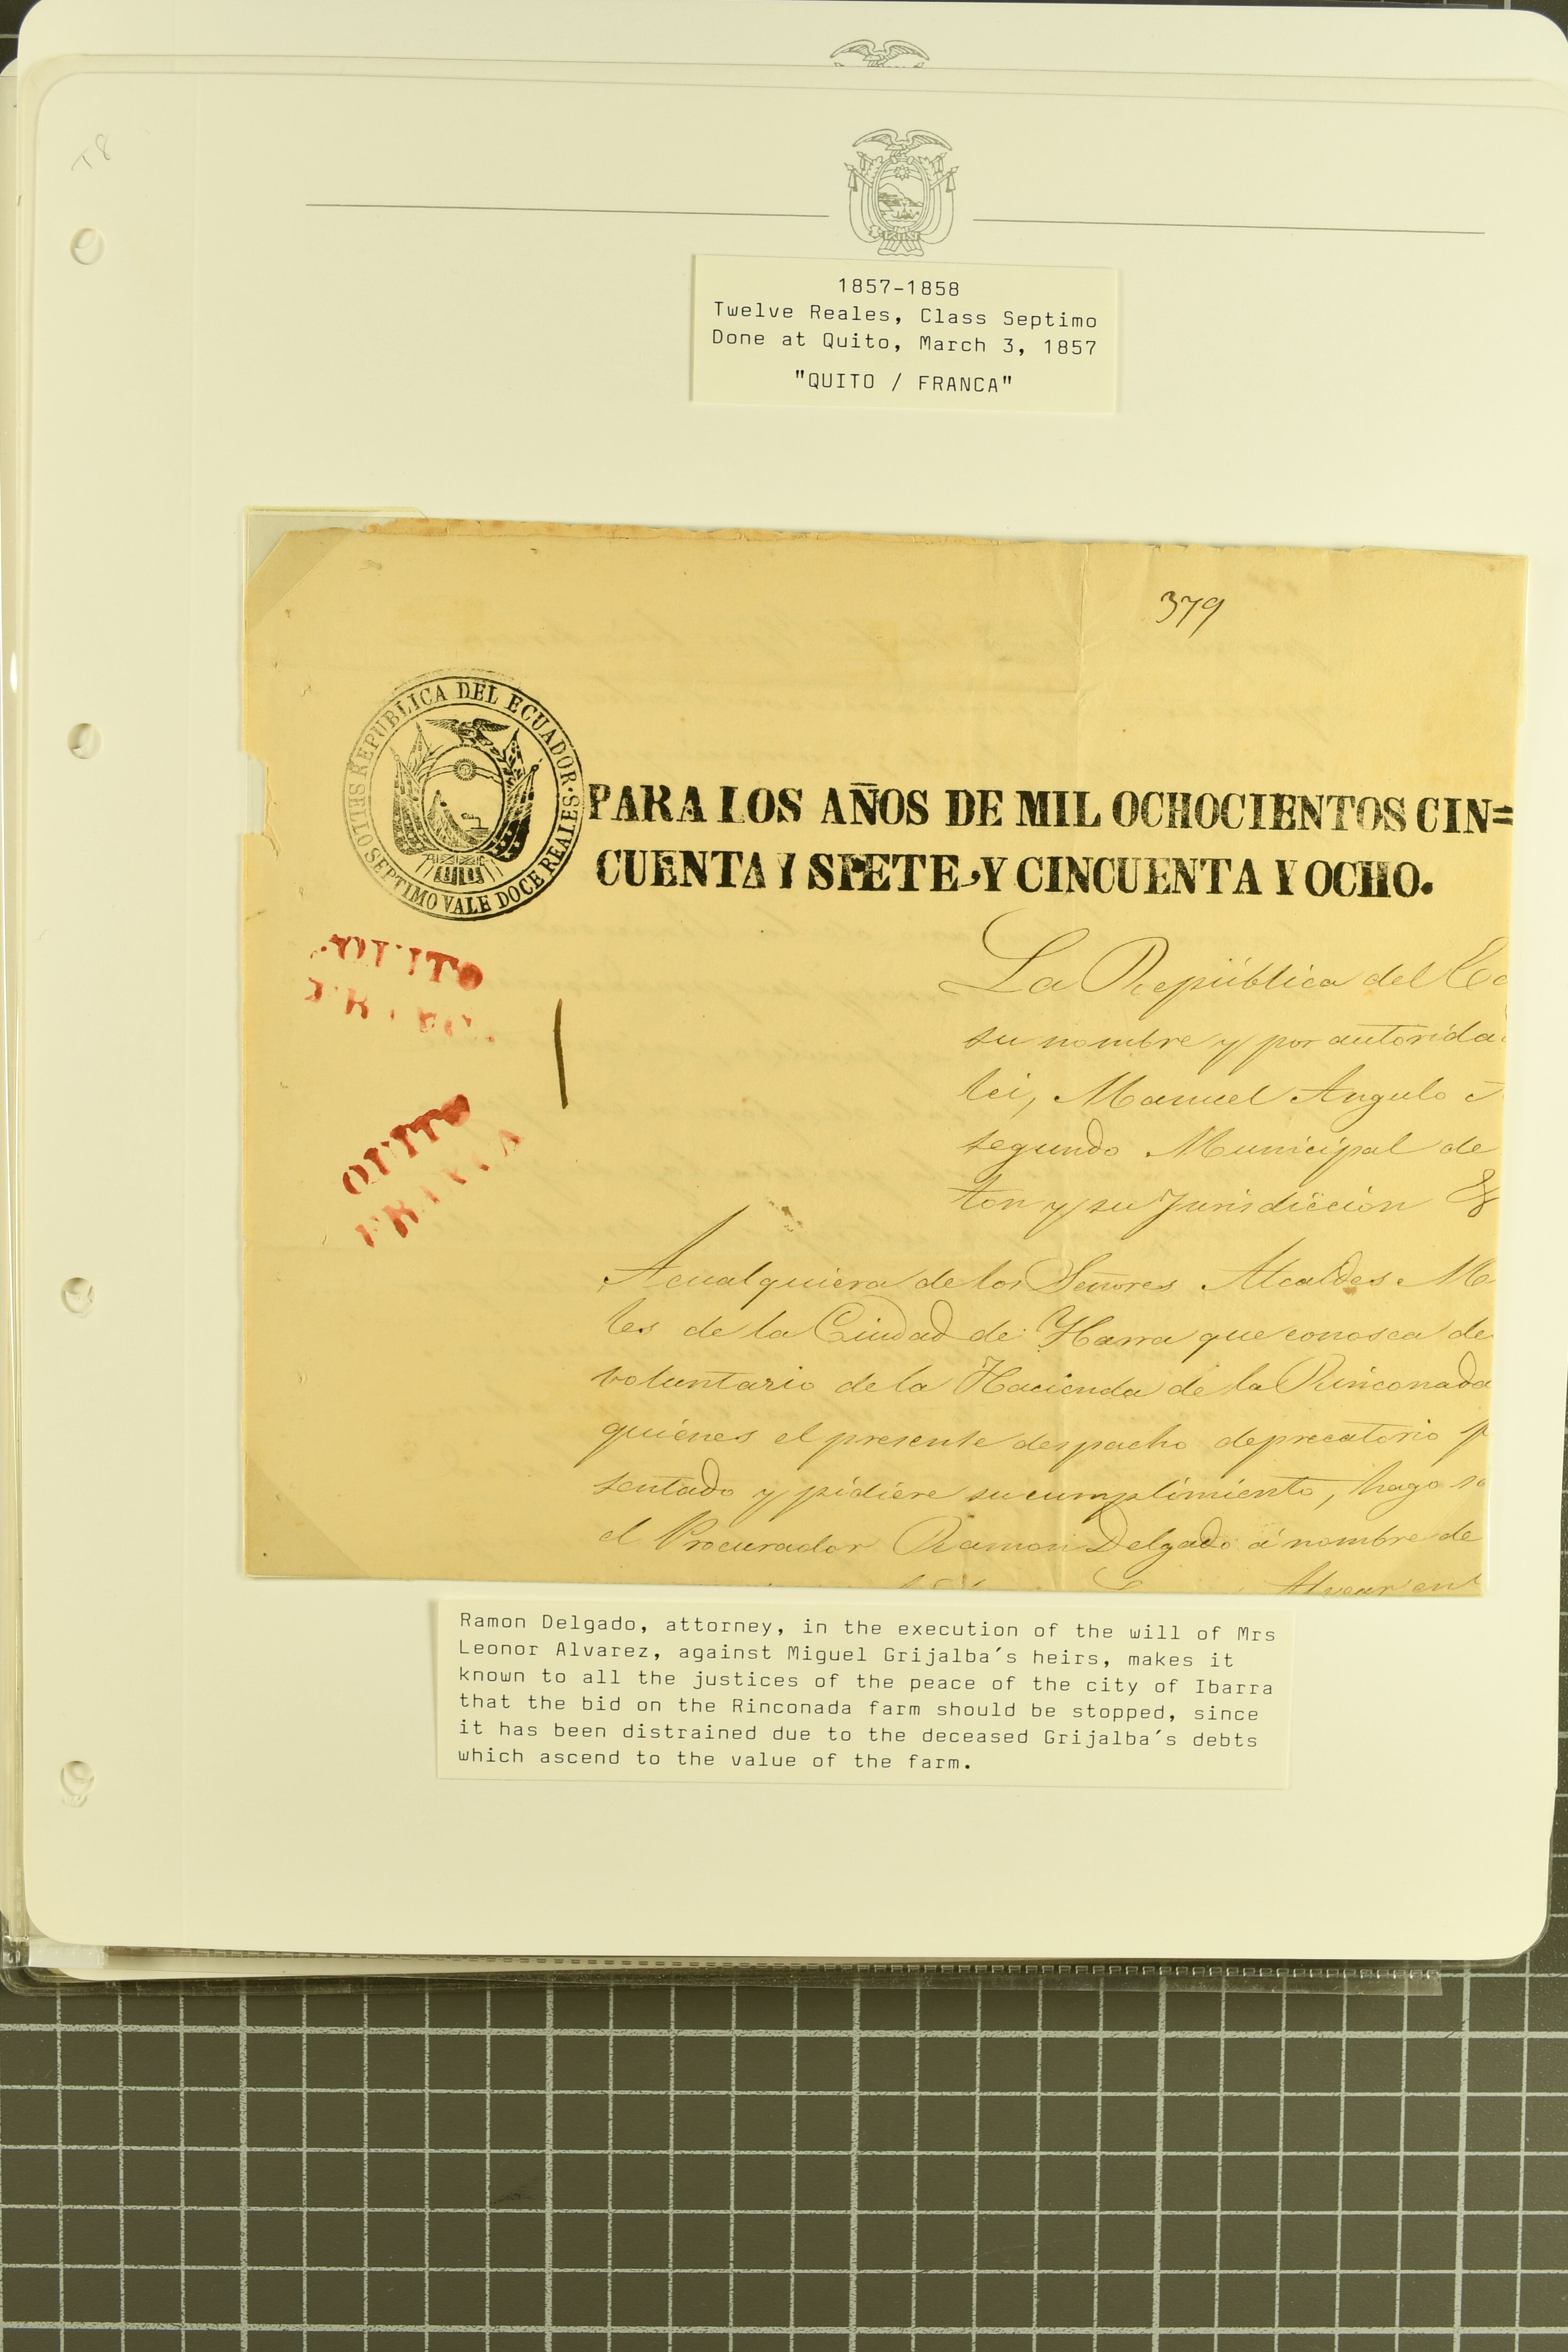 T8
1857-1858
Twelve Reales, Class Septimo
Done at Quito, March 3, 1857
"QUITO / FRANCA"
379
SELLO SEPTIMO VALE DOCE REALES · REPUBLICA DEL ECUADOR ·
PARA LOS AÑOS DE MIL OCHOCIENTOS CIN=
CUENTA Y SIETE, Y CINCUENTA Y OCHO.
QUITO
FRANCA
QUITO
FRANCA
La República del Ec
su nombre y por autorida
lei, Manuel Angulo
segundo Municipal de
ton y su Jurisdiccion
Acualquiera de los Señores Alcaldes M
les de la Ciudad de Ybarra que conosca de
voluntario de la Hacienda de la Rinconada
quienes el presente despacho deprecatorio
sentado y pidiere su cumplimiento, hago
el Procurador Ramon Delgado á nombre de
Ramon Delgado, attorney, in the execution of the will of Mrs
Leonor Alvarez, against Miguel Grijalba´s heirs, makes it
known to all the justices of the peace of the city of Ibarra
that the bid on the Rinconada farm should be stopped, since
it has been distrained due to the deceased Grijalba´s debts
which ascend to the value of the farm.